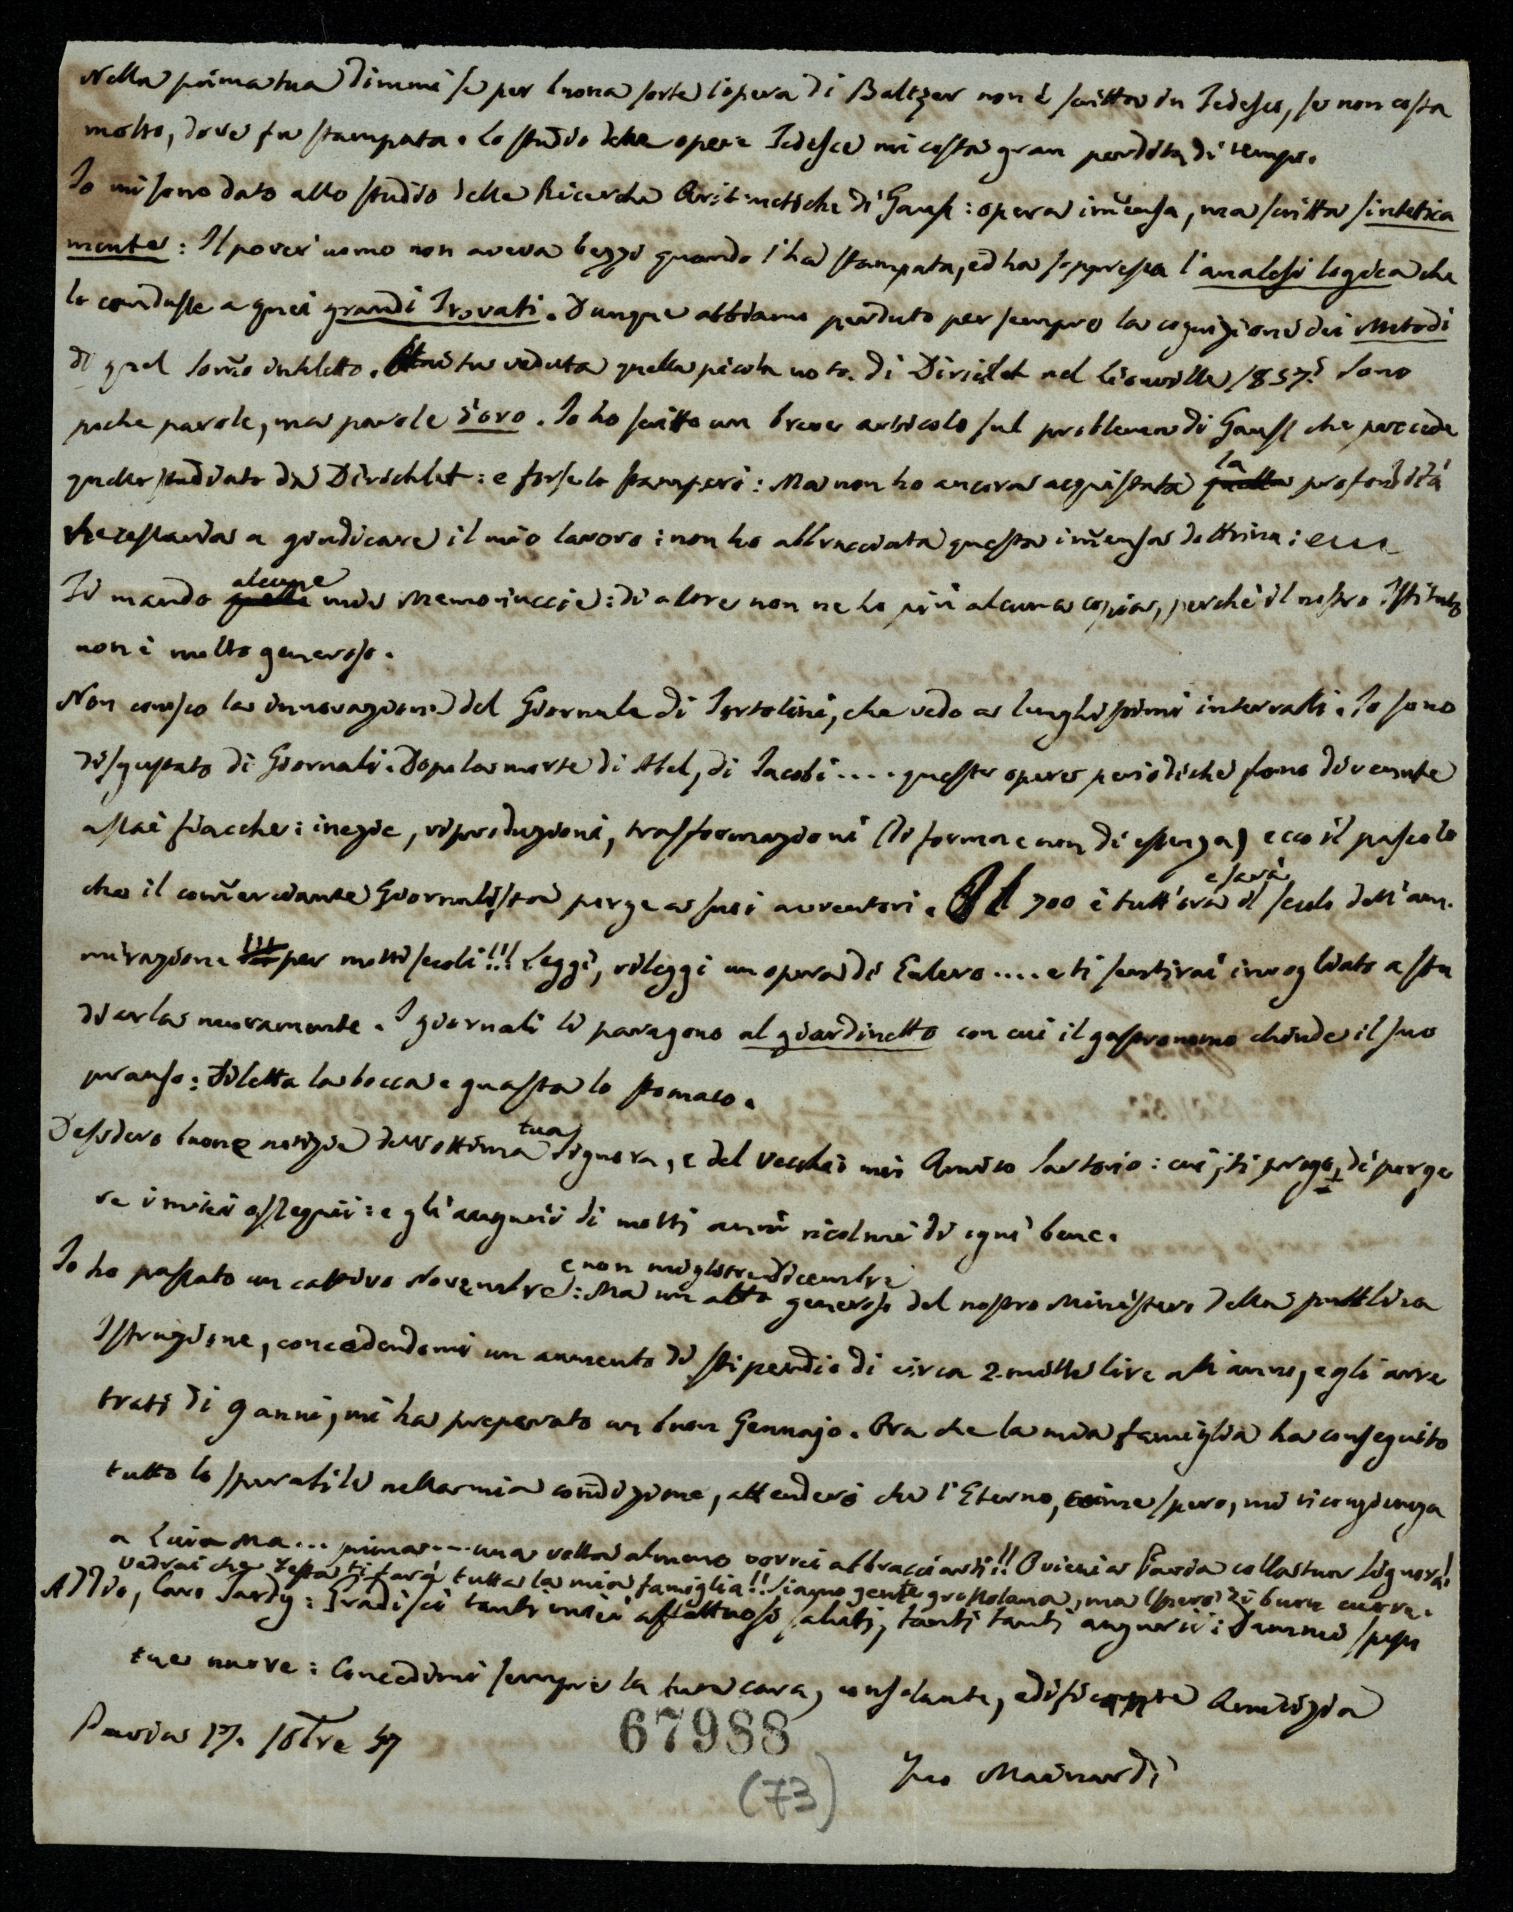 Nella prima tua dimmi se per buona sorte l'opera di Baltzer non è scritta in Tedesco, se non costa
molto, dove fu stampata. Lo studio delle opere Tedesce mi costa gran perdita di tempo.
Io mi sono dato allo studio delle Ricerche Aritmetiche di Gauss: opera imensa, ma scritta sintetica
mente: Il pover uomo non aveva bezzi quando l'ha stampata, ed ha soppressa l'analisi logica che
lo condusse a quei grandi Trovati. Dunque abbiamo perduto per sempre la cognizione dei Metodi
di quel somo intelletto. Hai tu veduta quella picola nota di Diriclet nel Liouville 1857? Sono
poche parole, ma parole d'oro. Io ho scritto un breve articolo sul problema di Gauss che precede
quello studiato da Dirichlet: e forse lo stamperò: Ma non ho ancora acquistata quella la profondità
necessaria a giudicare il mio lavoro: non ho abbracciata questa imensa dottrina: ecc
Ti mando quelle alcune mie Memoriuccie: di alore non ne ho più alcuna copia, perchè il nostro Istituto
non è molto generoso.
Non conosco la innovazione del Giornale di Tortolini, che vedo a lunghissimi intervalli. Io sono
disgustato di Giornali. Dopo la morte di Abel, di Jacobi.... queste opere periodiche sono divenute
assai fiacche: inezie, riproduzioni, trasformazioni (di forma e non di essenza) ecco il pascolo
che il comerciante Giornalista porge a suoi avventori. Il 700 è tutt'ora e sarà il secolo dell'am.
mirazione per molti secoli!!! Leggi, rileggi un opera di Eulero.... e ti sentirai invogliato a stu
diarla nuovamente. I giornali li paragono al giardinetto con cui il gastronomo chiude il suo
pranso: Diletta la bocca e guasta lo stomaco.
Desidero buone notizie dell'ottima tua Signora, e del vecchio mio Amico Sartorio: cui, ti prego, di porge
re i miei ossequii: e gli augurii di molti anni ricolmi di ogni bene.
Io ho passato un cattivo Novembre: e non migliore Dicembre Ma un atto generoso del nostro Ministero della pubblica
Istruzione, concedendomi un aumento di stipendio di circa 2. mille lire all'anno, e gli arre
trati di 9 anni, mi ha preparato un buon Gennajo. Ora che la mia famiglia ha conseguito
tutto lo sperabile nella mia condizione, attenderò che l'Eterno, come spero, mi ricongiunga
a Luisa Ma... prima.... una volta almeno vorrei abbracciarti!! O vieni a Pavia colla tua Signora!
vedrai che festa ti farà tutta la mia famiglia!! Siamo gente grossolana, ma (spero) di buon cuore.
Addio, Caro Tardy: Gradisci tanti miei affettuosi saluti, tanti tanti augurii: Dammi spesso
tue nuove: Concedimi sempre la tua cara, consolante, edificante Amicizia
Pavia 17. 10bre 57
67988
(73)
Tuo Mainardi